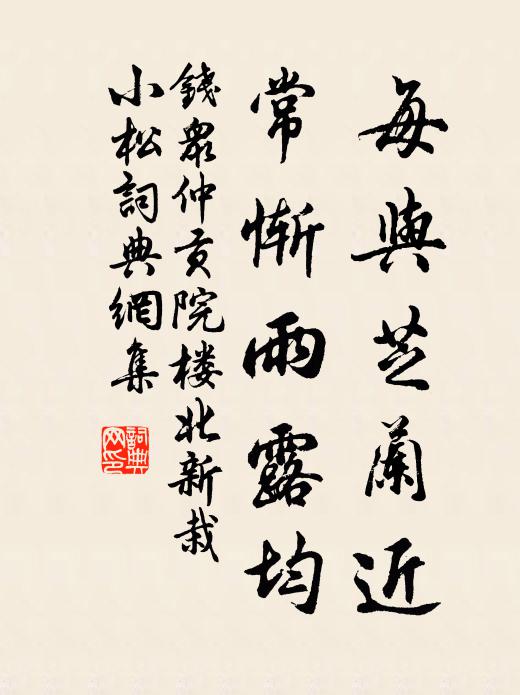 每與芝蘭近
常慚雨露均
錢眾仲貢院楼北新栽
小松詞典網集
詞典
网印